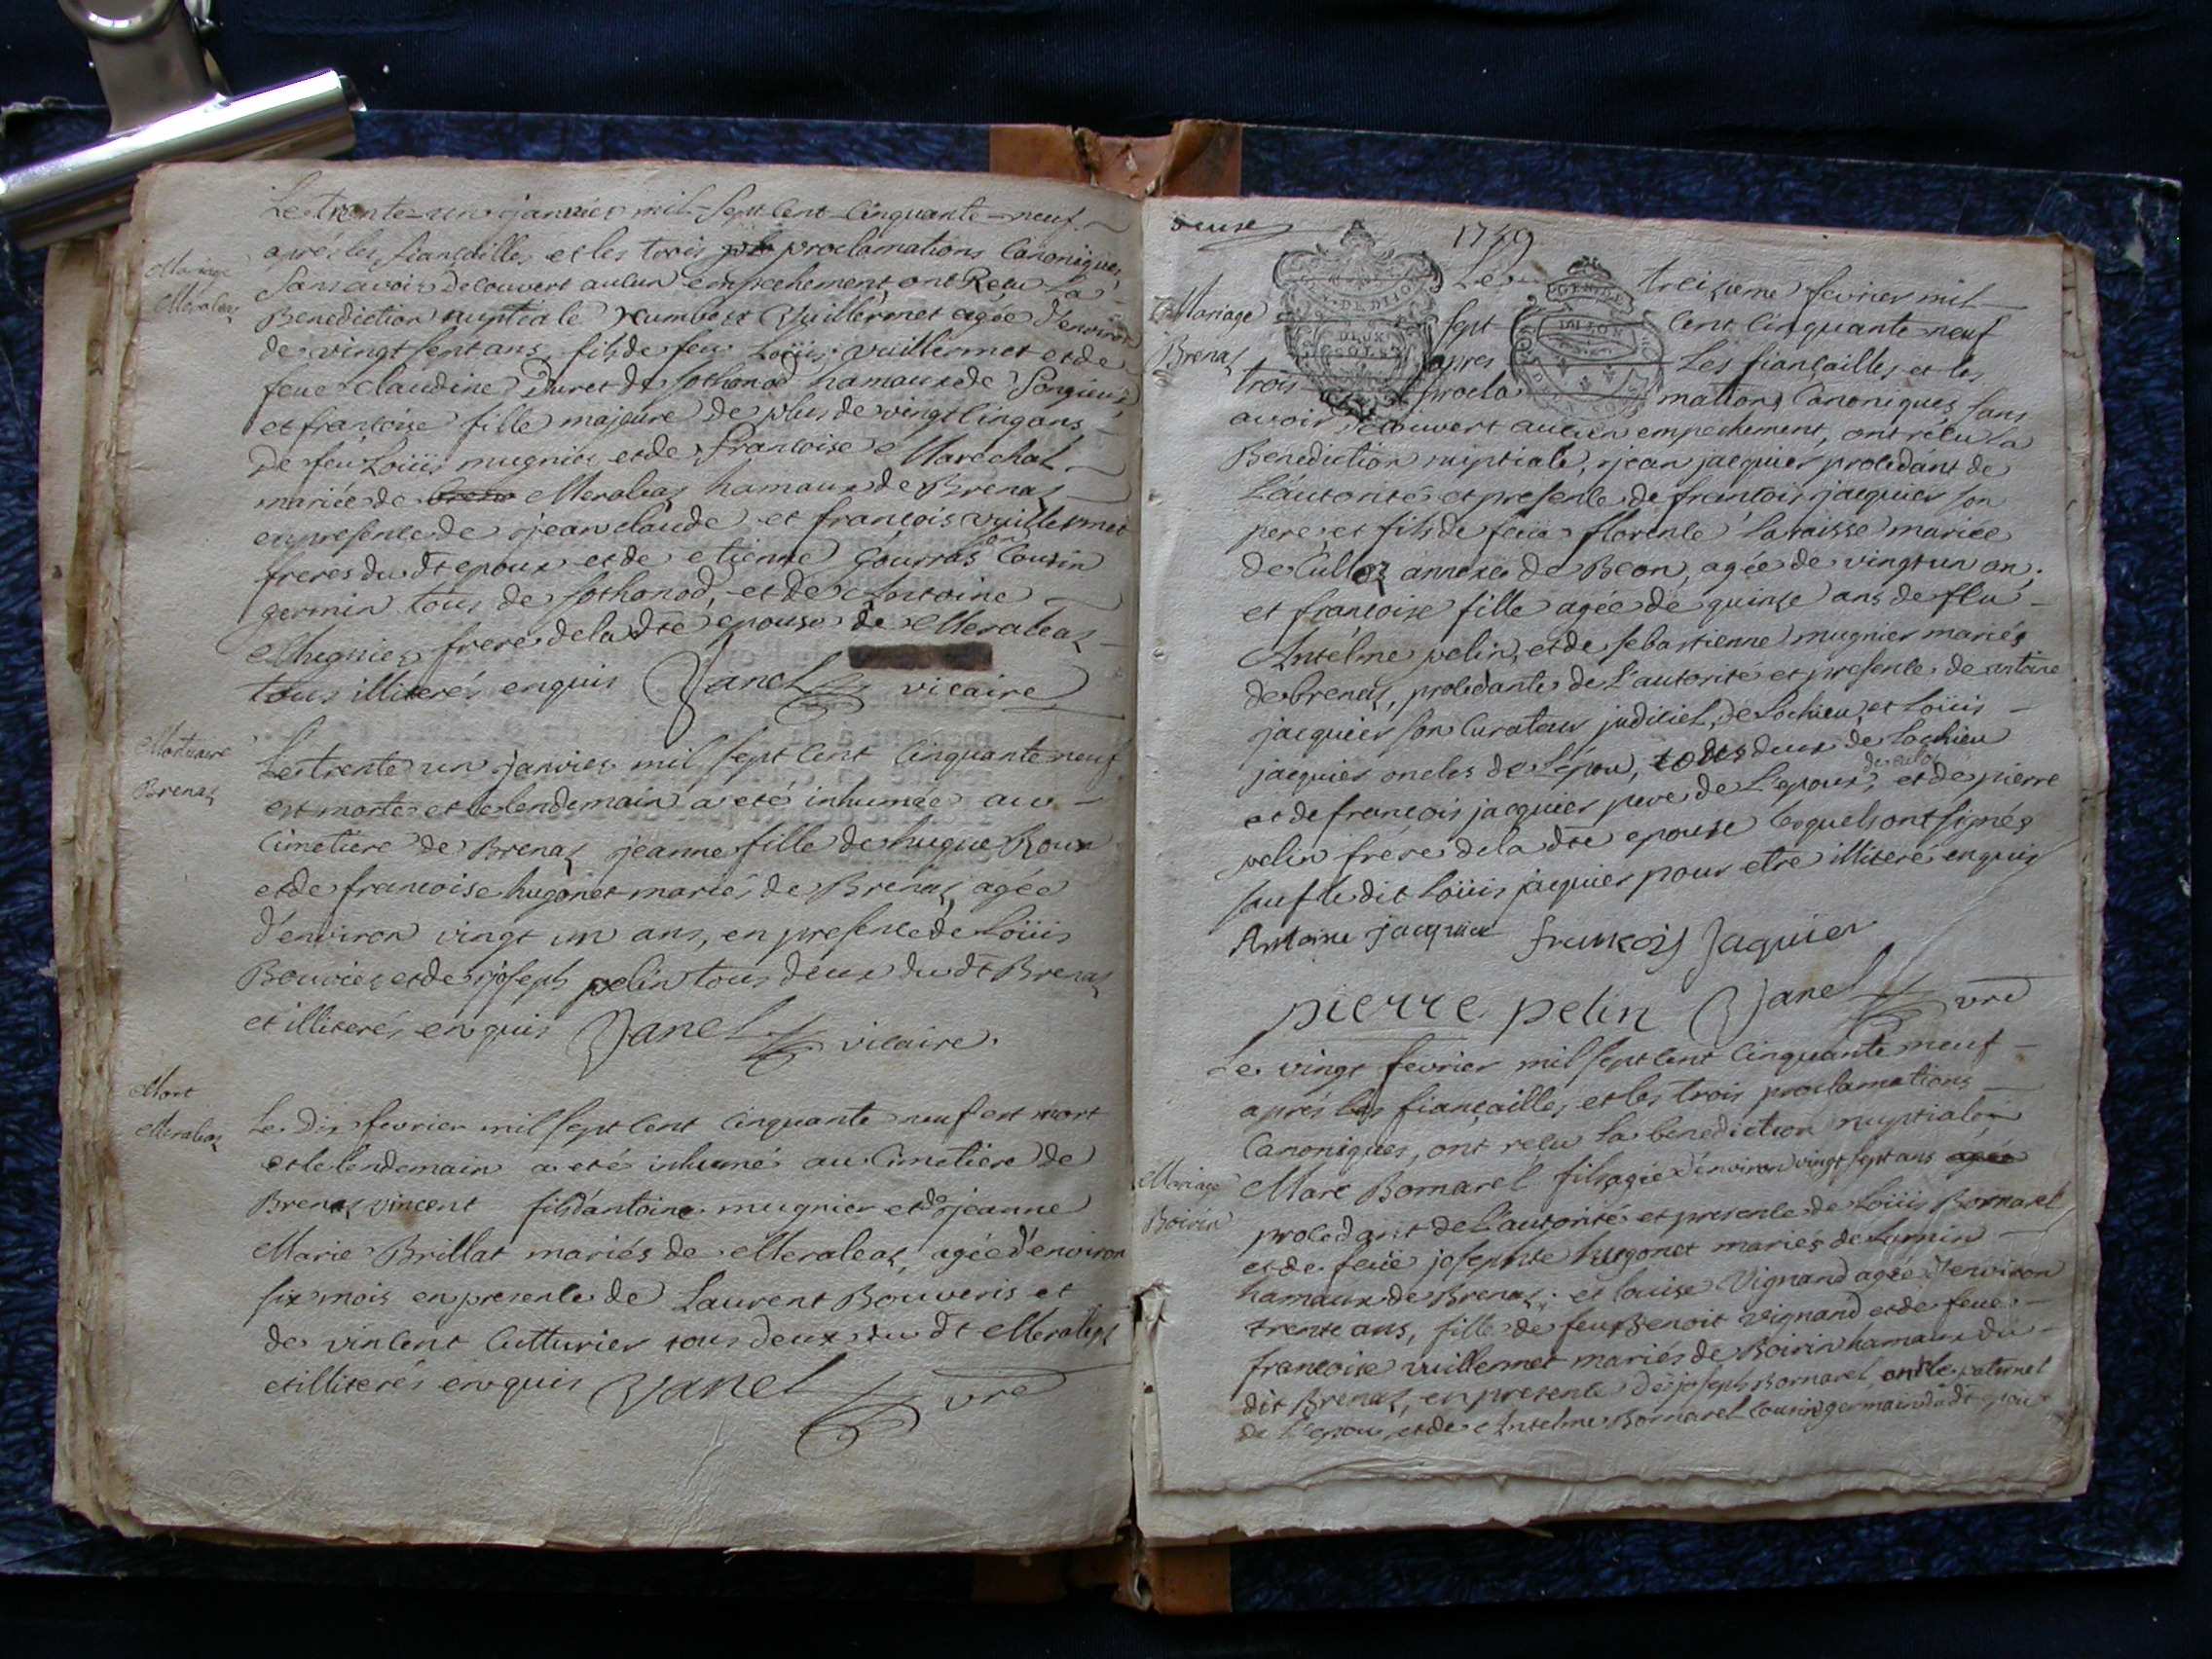 Le trente-un janvier mil-sept cent-cinquante-neuf
aprés les fiançailles et les trois proclamations Canoniques
Mariage
Meraleaz
sans avoir decouvert aucun empechement, ont Recu La
Benediction nuptiale humbert Vuillermet agée d'environ
de vingt sept ans, fils de feu Loüis vuillermet et de
feue Claudine Duret de sothonod hamaux de Songieu;
et françoise fille majeure de plus de vingt cinq ans
de feu Loüis mugnier et de françoise Marechal
mariée de Meraleaz hamaux de Brenaz
en presence de jean claude et françois vuillermet
freres du dt epoux et de etienne Gourras son Cousin
germin tous de sothonod, et de Antoine
Mugnier frere de la dte epouse de Meraleaz
tous illiterés enquis Janel vicaire
Mortuaire
Brenaz
Le trente un janvier mil sept cent Cinquante neuf
est morte et le lendemain a eté inhumée au
Cimetiere de Brenaz jeanne fille de hugue Roux
et de francoise hugonet mariés de Brenaz, agée
d'environ vingt un ans, en presence de Loüis
Bouvier et de joseph pelin tous deux du dt Brenaz
et illiterés enquis Janel vicaire.
Mort
Meraleaz
Le Dix fevrier mil sept cent Cinquante neuf est mort
et le lendemain a eté inhumé au Cimetiere de
Brenaz vincent fils d'antoine mugnier et de jeanne
Marie Brillat mariés de Meraleaz, agée d'environ
six mois en presence de Laurent Bouveris et
de vincent Cutturier tous deux du dt Meraleaz
et illiterés enquis Janel vre
1759
Le treizieme fevrier mil
Mariage
Brenaz
sept cent Cinquante neuf
apres Les fiançailles et les
trois proclamations Canoniques, sans
avoir decouvert aucun empechement, ont recu la
Benediction nuptiale, jean jacquier procedant de
L'autorité et presence de francois jacquier son
pere, et fils de feüe florence Lavaisse mariée
de Culloz annexe de Beon, agée de vingt un an;
et françoise fille agée de quinze ans de feu
Antelme pelin, et de sebastienne mugnier mariés
de brenaz, procedante de L'autorité et presence de antoine
jacquier son Curateur judiciel, de Lochieu, et Loüis
jacquier oncles de L'epou, tous deux de Lochieu
et de francois jacquier pere de L'epoux, de culo et de pierre
pelin frére de la dte epouse lesquels ont signés
sauf le dit Loüis jacquier pour etre illiteré enquis
Antoine jacquier françois Jaquier
pierre pelin Janel vre
Le vingt fevrier mil sept cent Cinquante neuf
aprés les fiançailles et les trois proclamations
Canoniques, ont recu la benediction nuptiale
Mariage
Boirin
Marc Bornarel fils agée d'environ vingt sept ans
procedant de L'autorité et presence de Loüis Bornarel
et de feüe josephte hugonet mariés de Lomin
hamaux de Brenaz; et louise Vignand agée d'environ
trente ans, fille de feu Benoit vignand et de feue
francoise vuillermet mariés de Boirin hamaux du
dit Brenaz, en presence de joseph Bornarel oncle paternel
de L'epou, et de Antelme Bornarel cousin germain du dt epoux